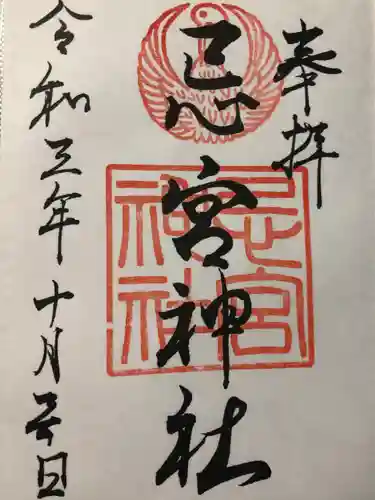 奉拝
忌宮神社
令和三年十月 日
忌宮
神社